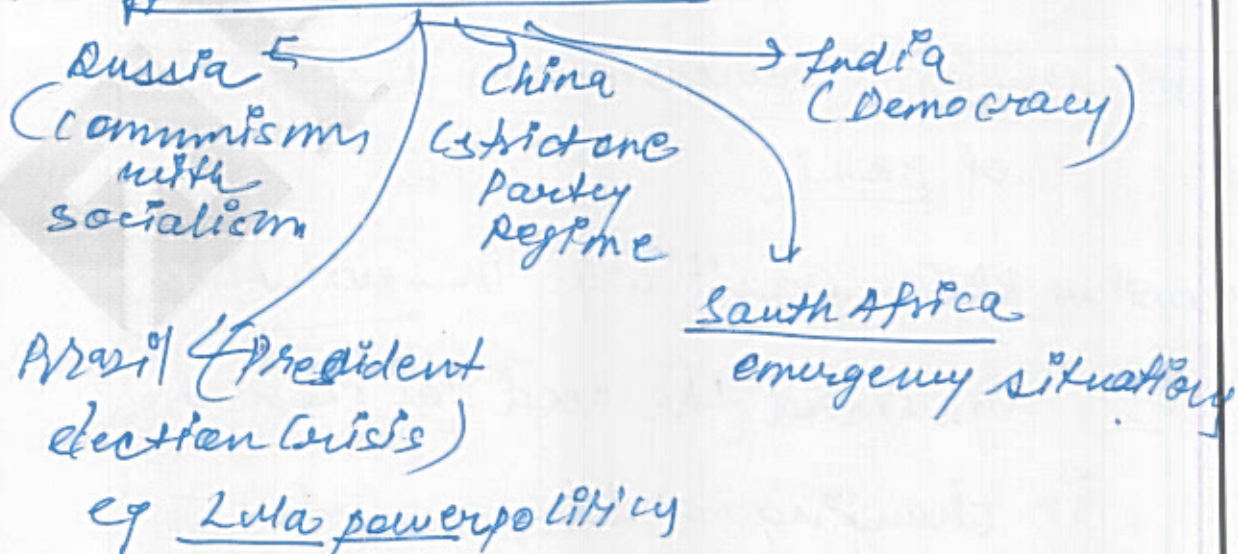 Russia
(Communism
with
socialism
China
(strict one
Party
Regime
India
(Democracy)
South Africa
emergency situation
Brazil (President
election crisis)
eg Lula power politics